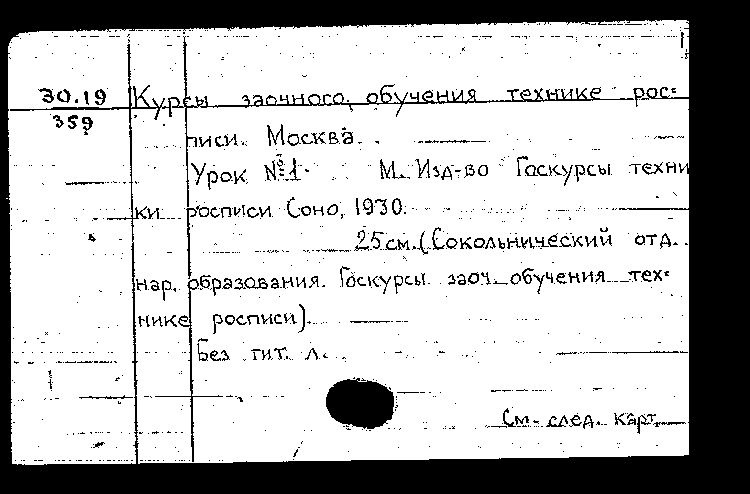 30.19 Курсы заочного обучения технике рос=
359
писи. Москва.
Урок №1. М. Изд-во Госкурсы техни
ки росписи Соно, 1930.
25см. (Сокольнический отд.
нар. образования. Госкурсы заоч. обучения тех=
нике росписи).
Без тит. л.
См. след. карт.